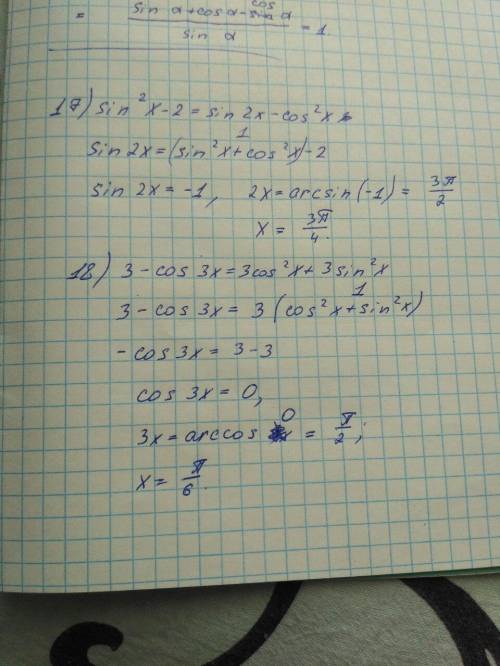 = (sin α + cos α - cos α) / (sin α) = 1
17) sin²x - 2 = sin 2x - cos²x
1
sin 2x = (sin²x + cos²x) - 2
sin 2x = -1, 2x = arcsin(-1) = 3π/2
x = 3π/4.
18) 3 - cos 3x = 3cos²x + 3sin²x
1
3 - cos 3x = 3 (cos²x + sin²x)
-cos 3x = 3 - 3
cos 3x = 0,
3x = arccos 0 = π/2;
x = π/6.